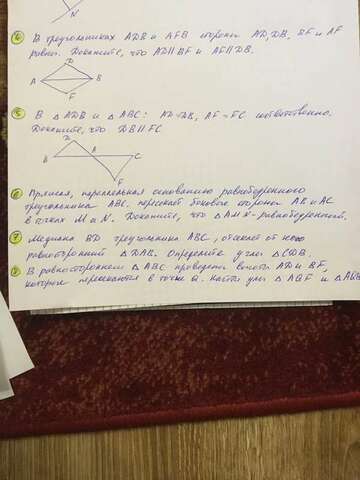 N
④ В треугольниках ADB и AFB стороны AD, DB, BF и AF
равны. Докажите, что AD∥BF и AF∥DB.
D
A B
F
⑤ В △ADB и △ABC: AD=DB, AF=FC соответственно.
Докажите, что DB∥FC
D A
B C
F
⑥ Прямая, параллельная основанию равнобедренного
треугольника ABC, пересекает боковые стороны AB и AC
в точках M и N. Докажите, что △AMN-равнобедренный.
⑦ Медиана BD треугольника ABC, отсекает от него
равносторонний △DAB. Определите углы △CDB.
⑧ В равностороннем △ABC проведены высоты AD и BF,
которые пересекаются в точке Q. Найти углы △AQF и △AQB